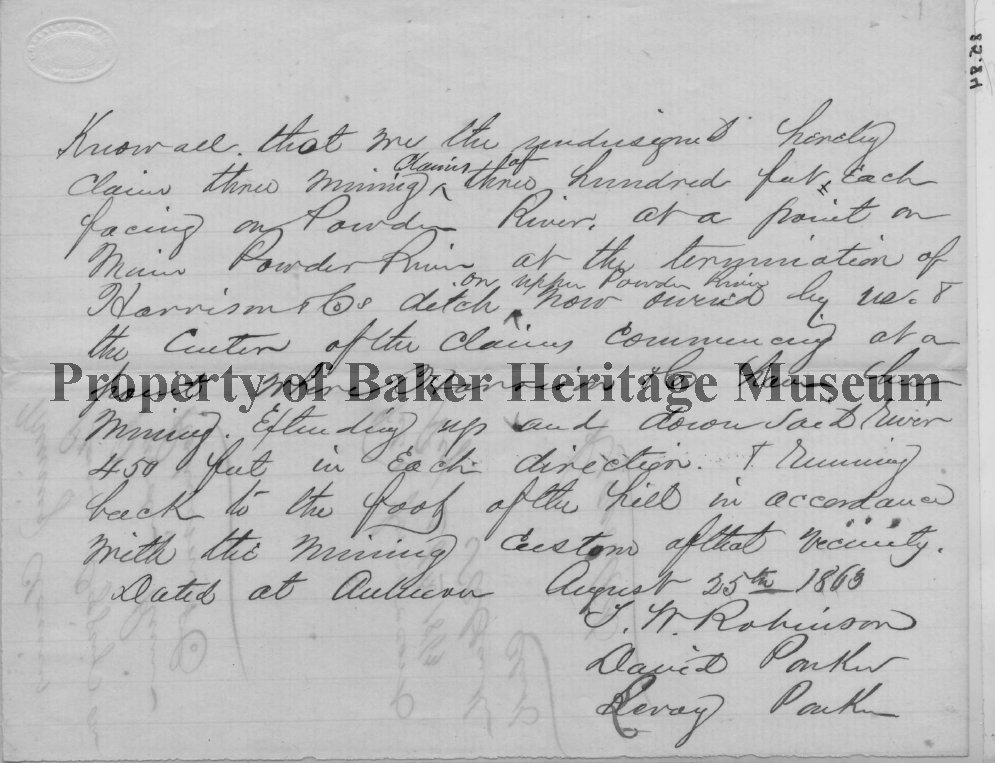 Know all. that we the undersigned hereby
claim three mining claims of three hundred feet Each
facing on Powder River. at a point on
Main Powder River at the termination of
Harrison & Cos ditch on upper Powder River now owned by us. &
the Center of the claims commencing at a
point where Harrison & Co have been
Property of Baker Heritage Museum
mining. Extending up and down said River
450 feet in Each direction. & running
back to the foot of the hill in accordance
with the mining custom of that vicinity.
Dated at Auburn August 25th 1863
T. W. Robinson
David Parker
Leroy Parker
85.84